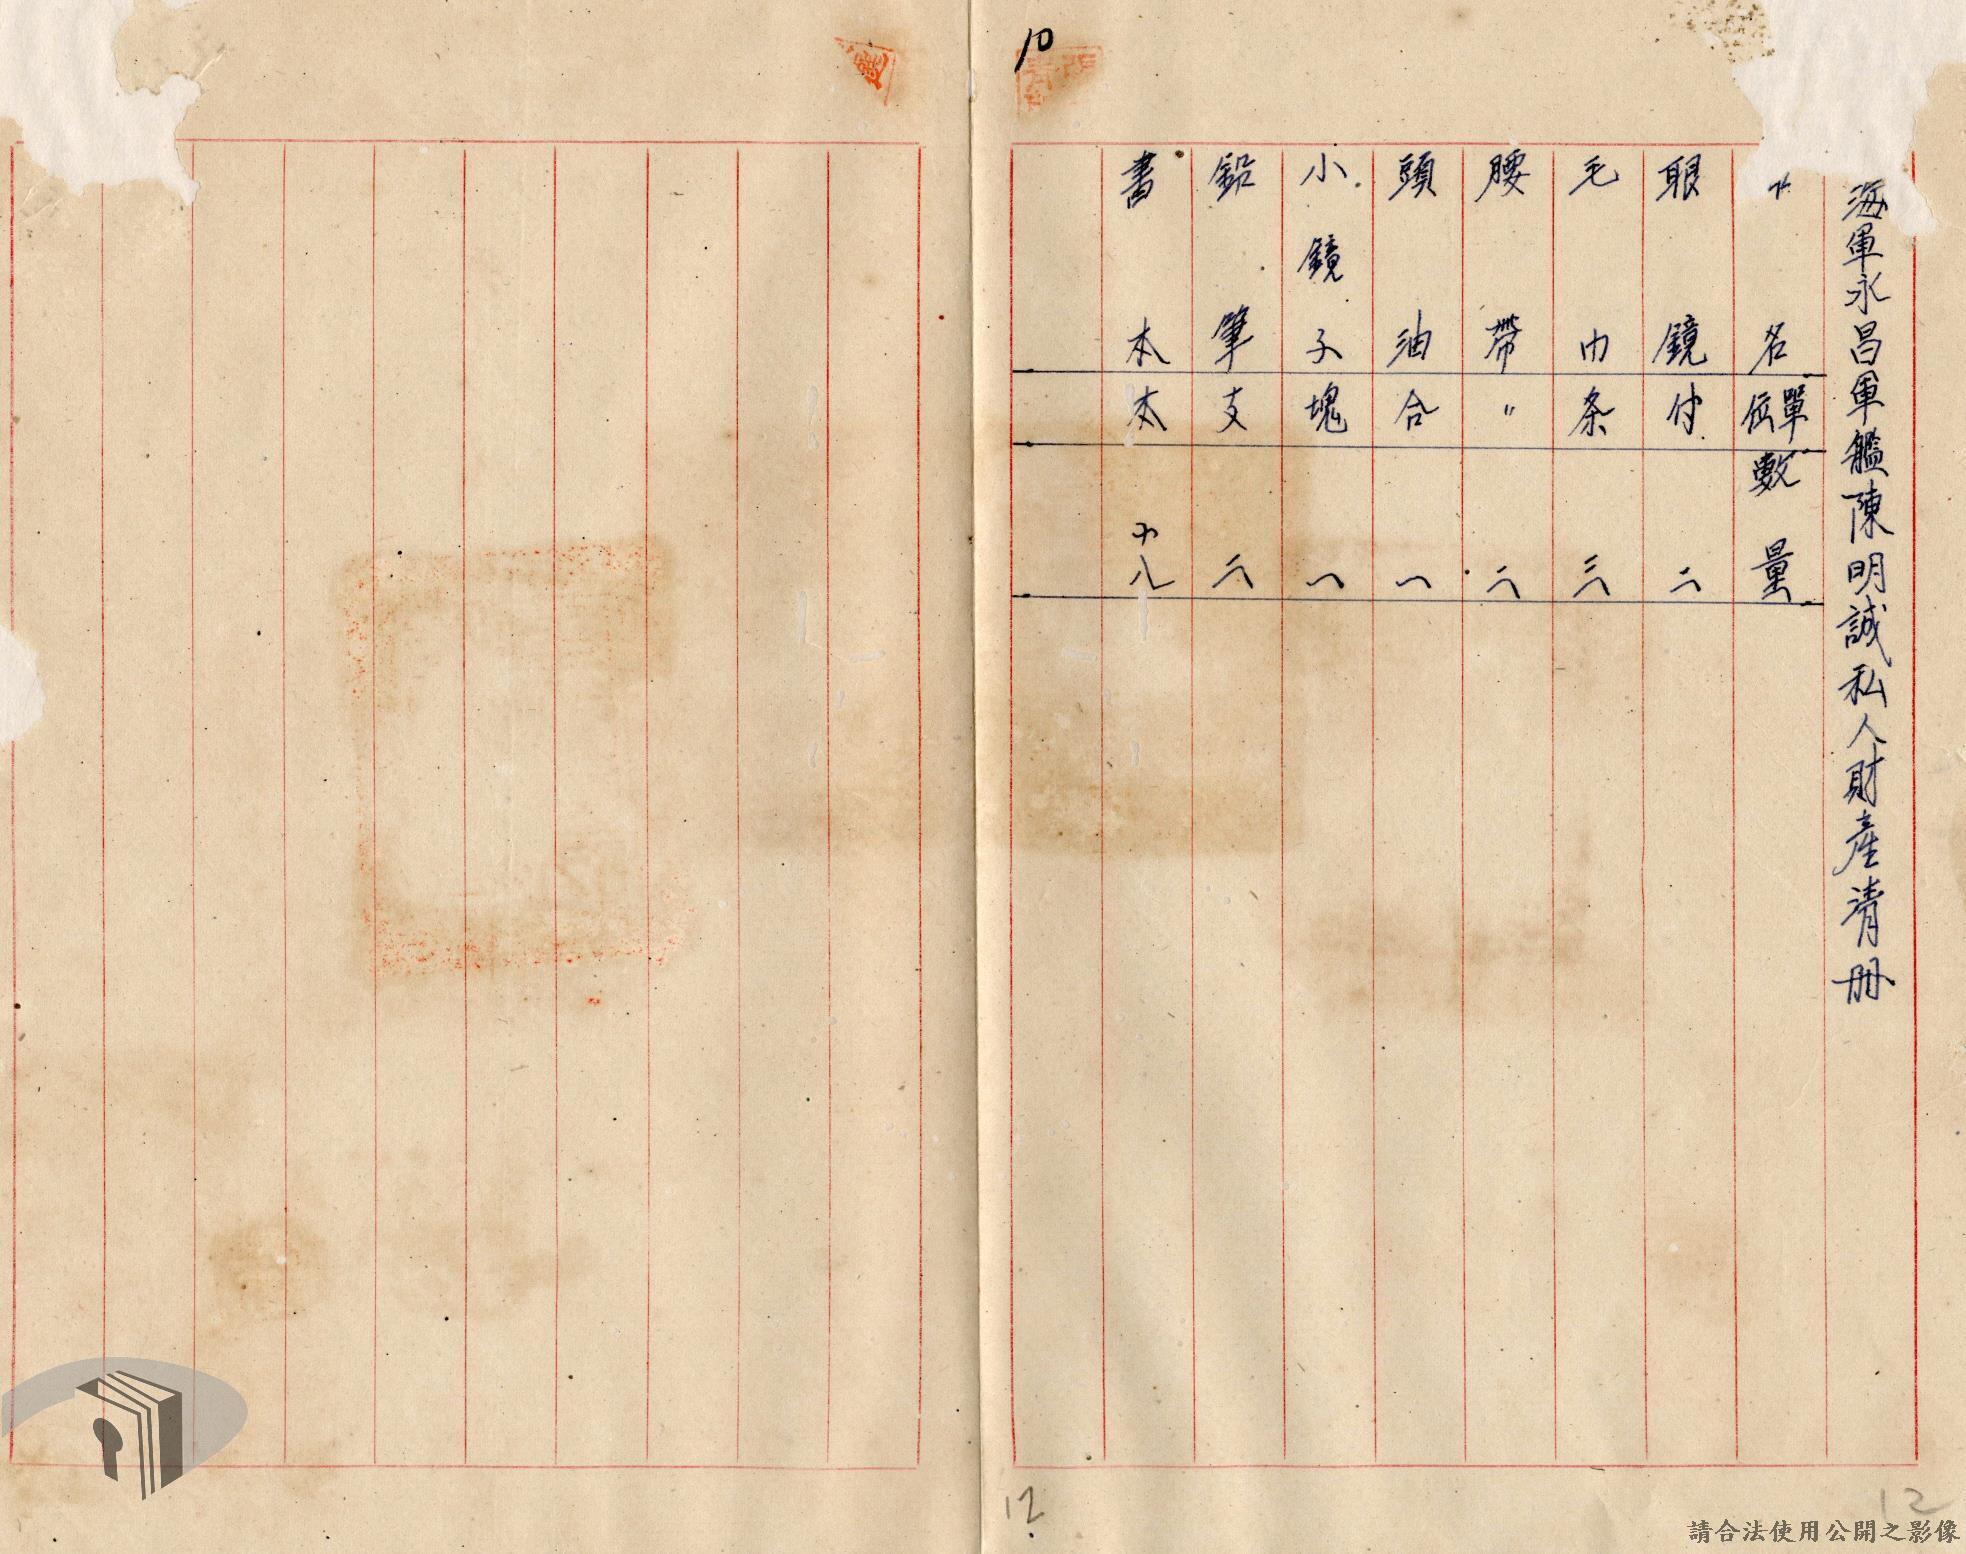 海軍永昌軍艦陳明誠私人財產清册
名 單位 數量
眼鏡 付 二
毛巾 条 三
腰帶 〃 二
頭油 合 一
小鏡子 塊 一
鉛筆 支 二
書本 本 十八
10
12
12
請合法使用公開之影像